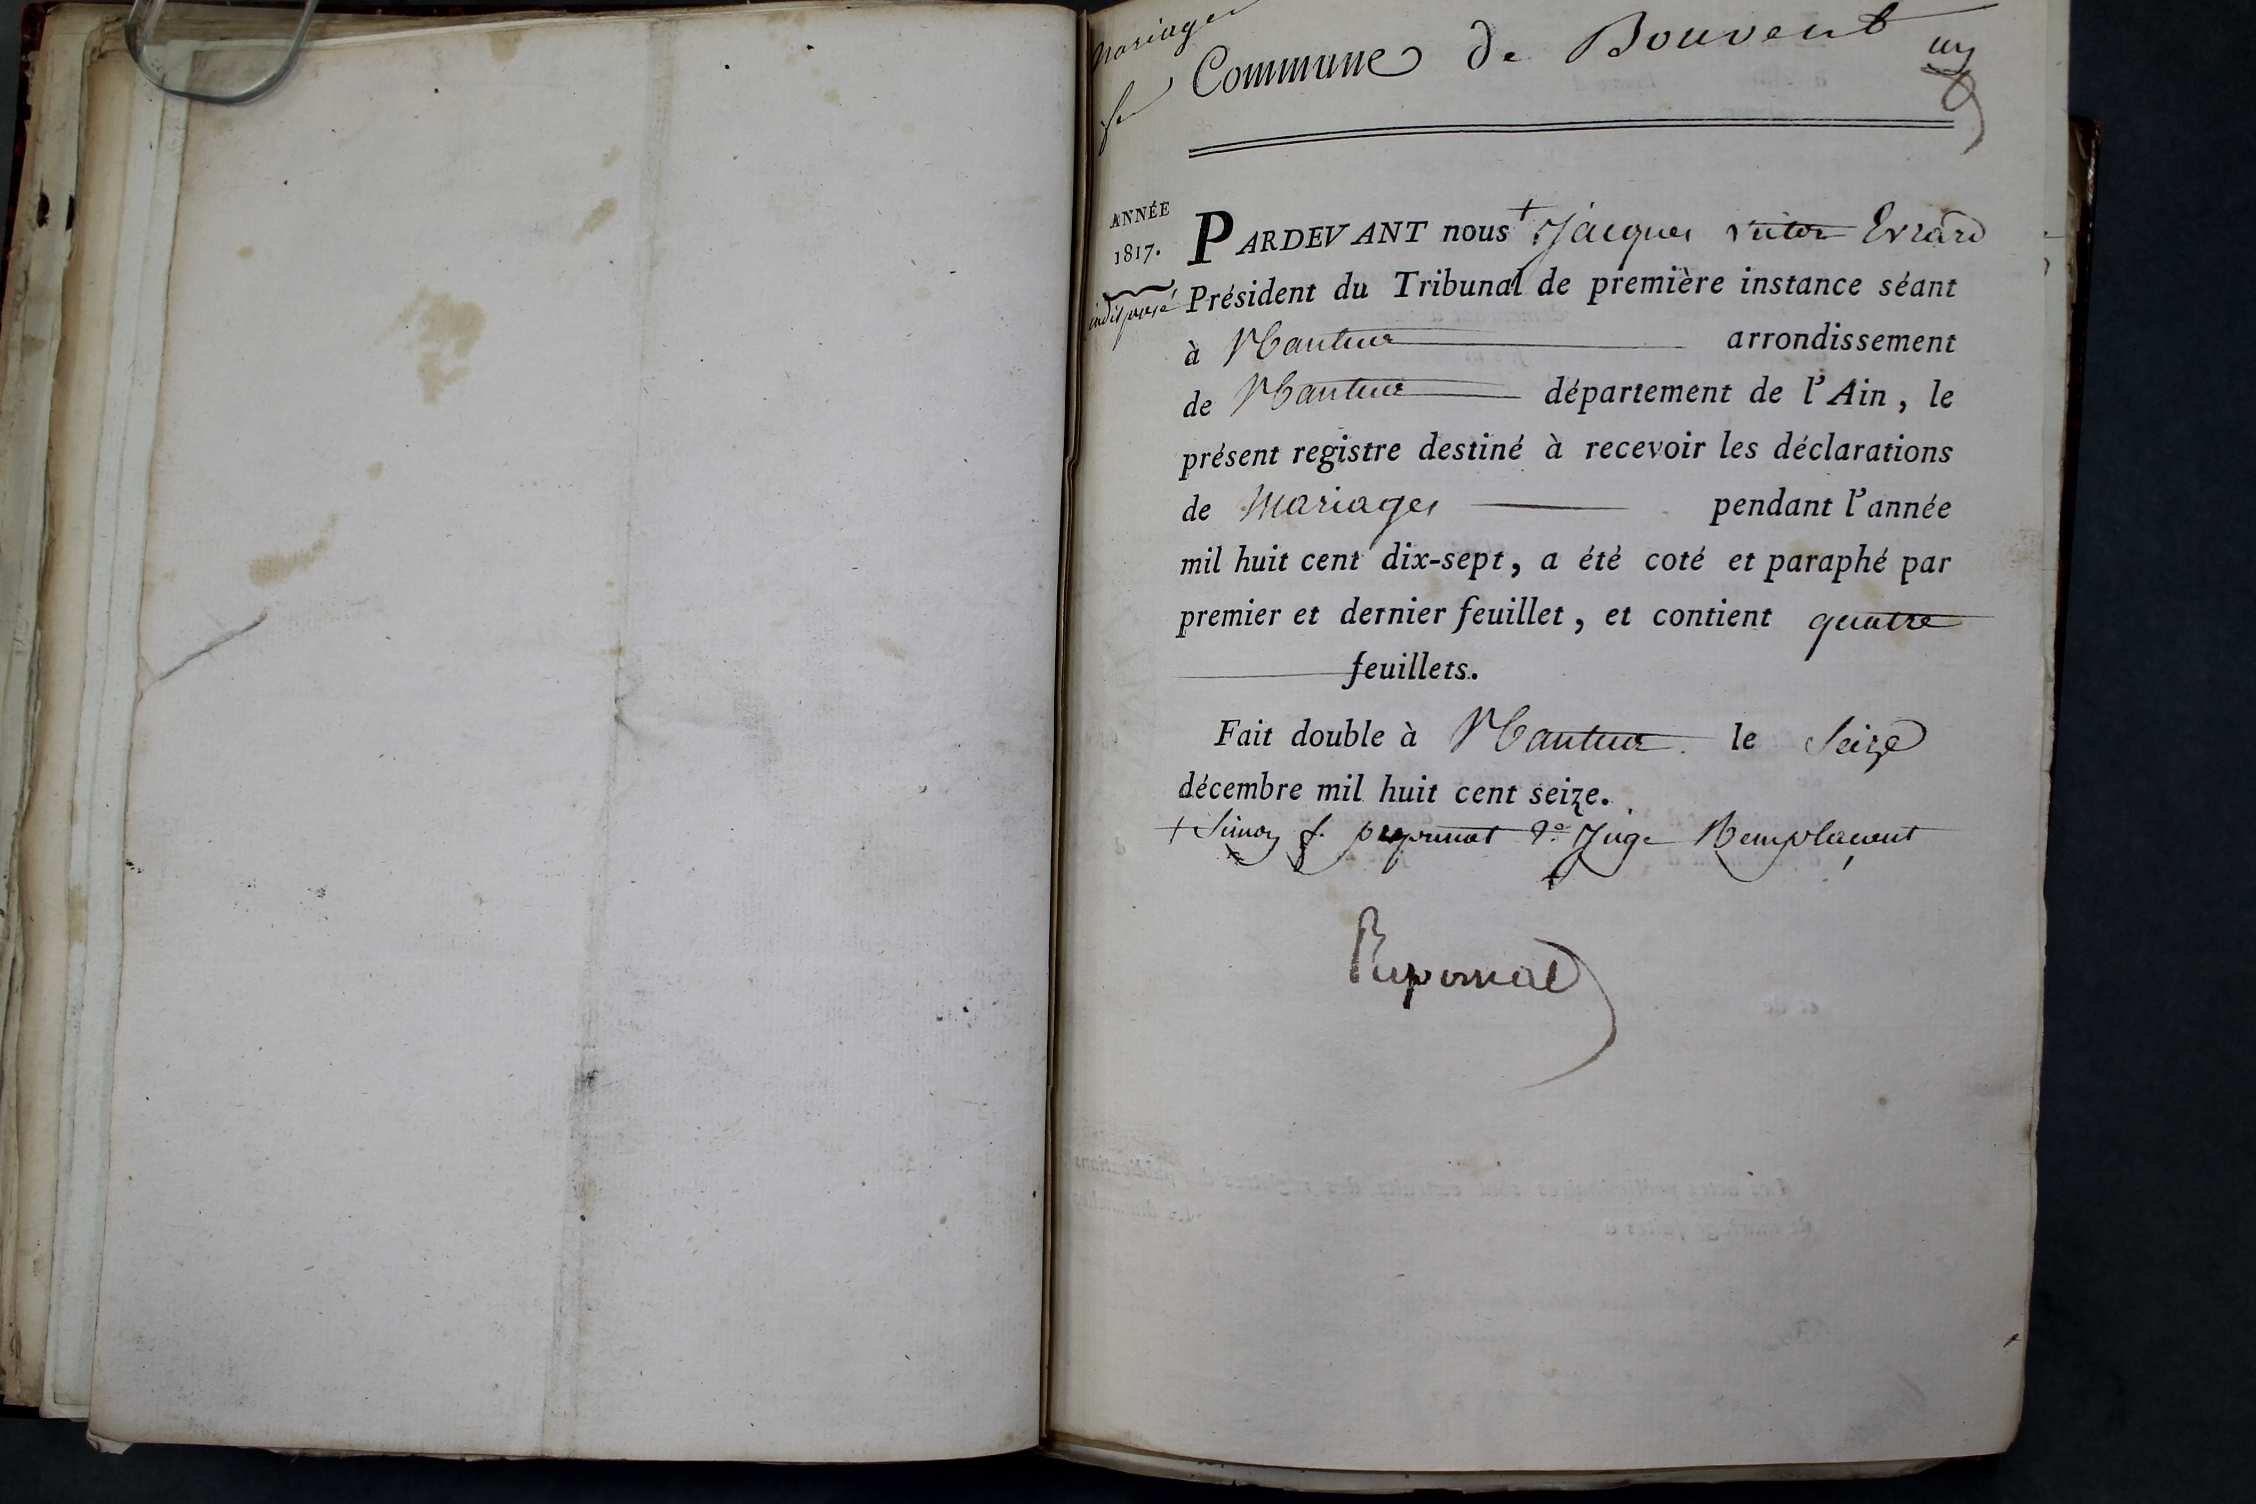 Mariages
Commune de Bouvent
un
ANNÉE
1817.
indisposé
PARDEVANT nous + Jacques Victor Evrard
Président du Tribunal de première instance séant
à Nantua arrondissement
de Nantua département de l'Ain, le
présent registre destiné à recevoir les déclarations
de Mariages pendant l'année
mil huit cent dix-sept, a été coté et paraphé par
premier et dernier feuillet, et contient quatre
feuillets.
Fait double à Nantua le Seize
décembre mil huit cent seize.
+ Simon f. puyounat Juge Remplaçant